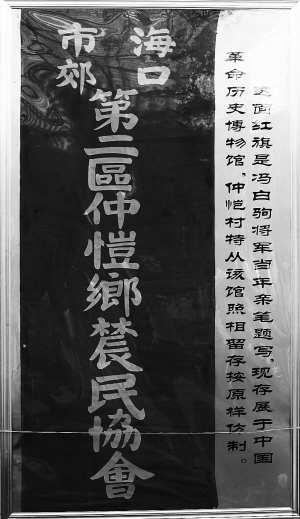 这面红旗是冯白驹将军当年亲笔题写，现存展于中国
革命历史博物馆，仲恺村特从该馆照相留存按原样仿制。
海口
市郊
第二區仲愷鄉農民協會